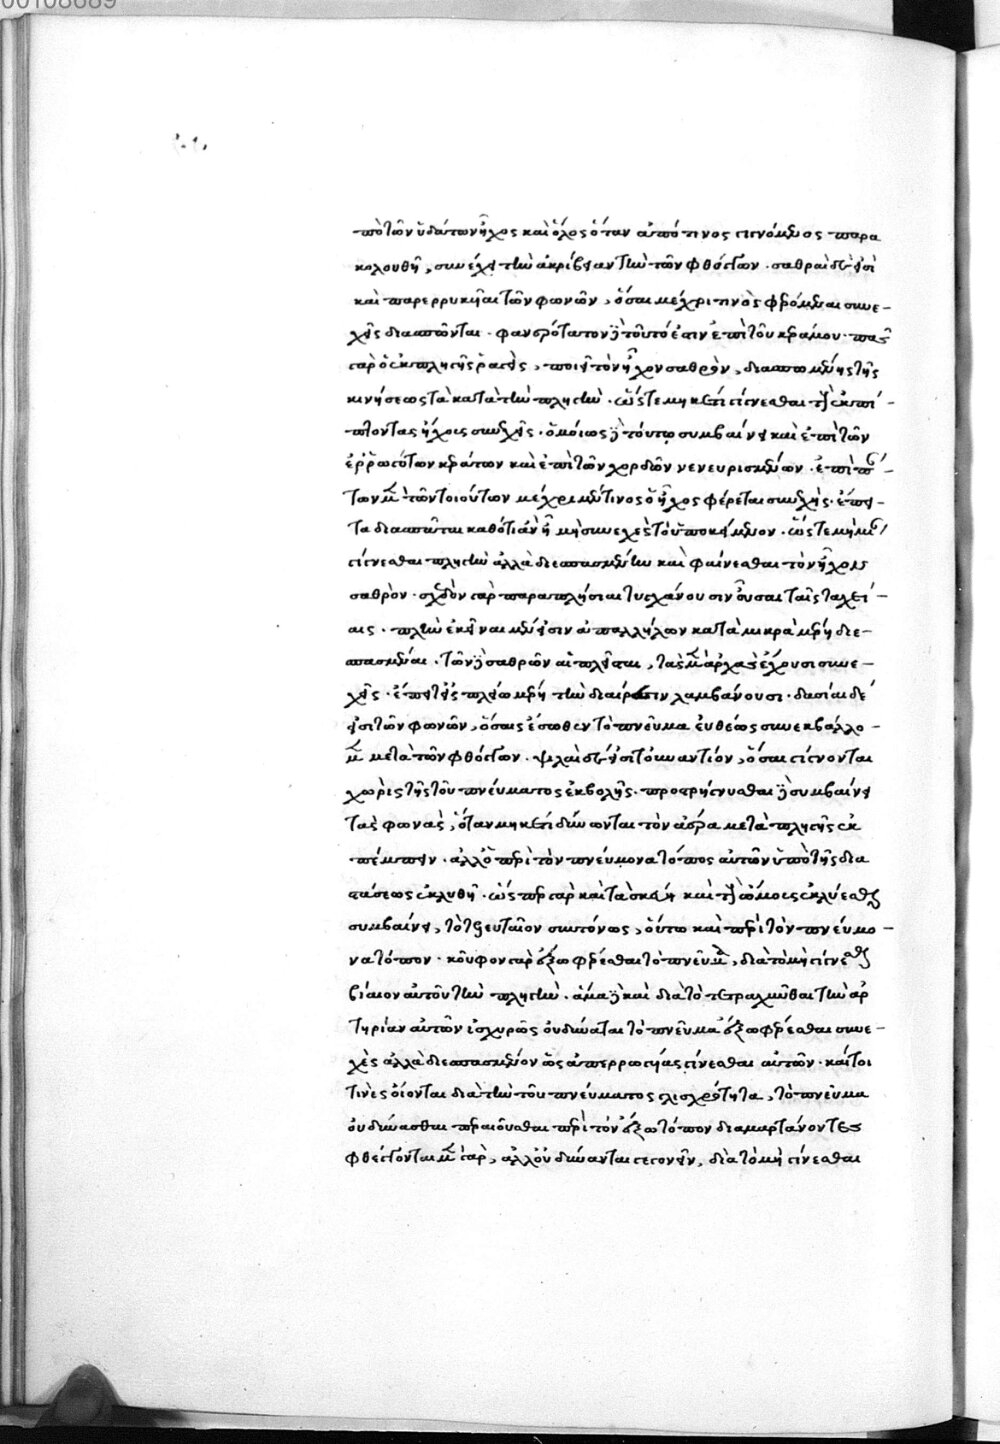 00108689
πὸ τῶν ὑδάτων ἦχος καὶ ὅλος ὅταν ἀπό τινος γιγνόμενος παρα
κολουθῇ, συνέχει τὴν ἀκρίβειαν τὴν τῶν φθόγγων. σαθραὶ δὲ εἰσὶ
καὶ παρερρυηκῆαι τῶν φωνῶν, ὅσαι μέχρι τινὸς φερόμεναι συνε-
χῆς διασπῶνται. φανερότατον δὲ τοῦτό ἐστιν ἐπὶ τοῦ κεράμου. πᾶς
γὰρ ὁ ἐκ πληγῆς ῥαγεὶς, ποιεῖ τὸν ἦχον σαθρὸν, διασπωμένης τῆς
κινήσεως τὰ κατὰ τὴν πληγὴν. ὥστε μηκέτι γίγνεσθαι τοὺς ἐκπί-
πτοντας ἤχοις συνεχῆς. ὁμοίως δὲ τούτῳ συμβαίνει καὶ ἐπὶ τῶν
ἐρρωγότων κεράτων καὶ ἐπὶ τῶν χορδῶν νενευρισμένων. ἐπὶ πάν-
των μὲν τῶν τοιούτων μέχρι μέν τινος ὁ ἦχος φέρεται συνεχής. ἔπει-
τα διασπᾶται καθότι ἀν ἦ μὴ συνεχὲς τὸ ὑποκείμενον. ὥστε μὴ μίαν
γίγνεσθαι πληγὴν ἀλλὰ διεσπασμένην καὶ φαίνεσθαι τὸν ἦχον
σαθρὸν. σχεδὸν γὰρ παραπλήσιαι τυγχάνουσιν οὖσαι ταῖς ταχεί-
αις. πλὴν ἐκεῖναι μέν εἰσιν ἀπαλλήλων κατὰ μικρὰ μέρη διε-
σπασμέναι. τῶν δὲ σαθρῶν αἱ πλεῖσται, τὰς μὲν ἀρχὰς ἔχουσι συνε-
χῆς. ἔπειτ εἰς πλείω μέρη τὴν διαίρεσιν λαμβάνουσι. δασίαι δέ
εἰσι τῶν φωνῶν, ὅσαις ἔσωθεν τὸ πνεῦμα εὐθέως συνεκβάλλο-
μεν μετὰ τῶν φθόγγων. ψιλαὶ δὲ εἰσὶ τὸ ἐναντίον, ὅσαι γίγνονται
χωρὶς τῆς τοῦ πνεύματος ἐκβολῆς. προσρήγνυσθαι δὲ συμβαίνει
τὰς φωνὰς, ὅταν μηκέτι δύνωνται τὸν ἀέρα μετὰ πληγῆς ἐκ
πέμπειν. ἀλλ ὁ περὶ τὸν πνεύμονα τόπος αὐτῶν ὑπὸ τῆς δια
τάσεως ἐκλυθῇ. ὥσπερ γὰρ καὶ τὰ σκέλη καὶ τοὺς ὤμους ἐκλύεσθαι
συμβαίνει, τὸ τελευταῖον συντόνως, οὕτω καὶ περὶ τὸν πνεύμο-
να τόπον. κοῦφον γὰρ ἔξω φέρεσθαι τὸ πνεῦμα, διὰ τὸ μὴ γίγνεσθαι
βίαιον αὐτοῦ τὴν πληγὴν. ἅμα δὲ καὶ διὰ τὸ τετραχῦνθαι τὴν ἀρ
τηρίαν αὐτῶν ἰσχυρῶς οὐ δύναται τὸ πνεῦμα ἔξω φέρεσθαι συνε-
χὲς ἀλλὰ διεσπασμένον ὥς ἀπερρωγυίας γίνεσθαι αὐτῶν. καίτοι
τινὲς οἴονται διὰ τὴν τοῦ πνεύματος γλισχρότητα, τὸ πνεῦμα
οὐ δύνασθαι περαιοῦσθαι περὶ τὸν ἔξω τόπον διαμαρτάνοντες
φθέγγονται μὲν γὰρ, ἀλλ οὐ δύνανται γεγονεῖν, διὰ τὸ μὴ γίνεσθαι